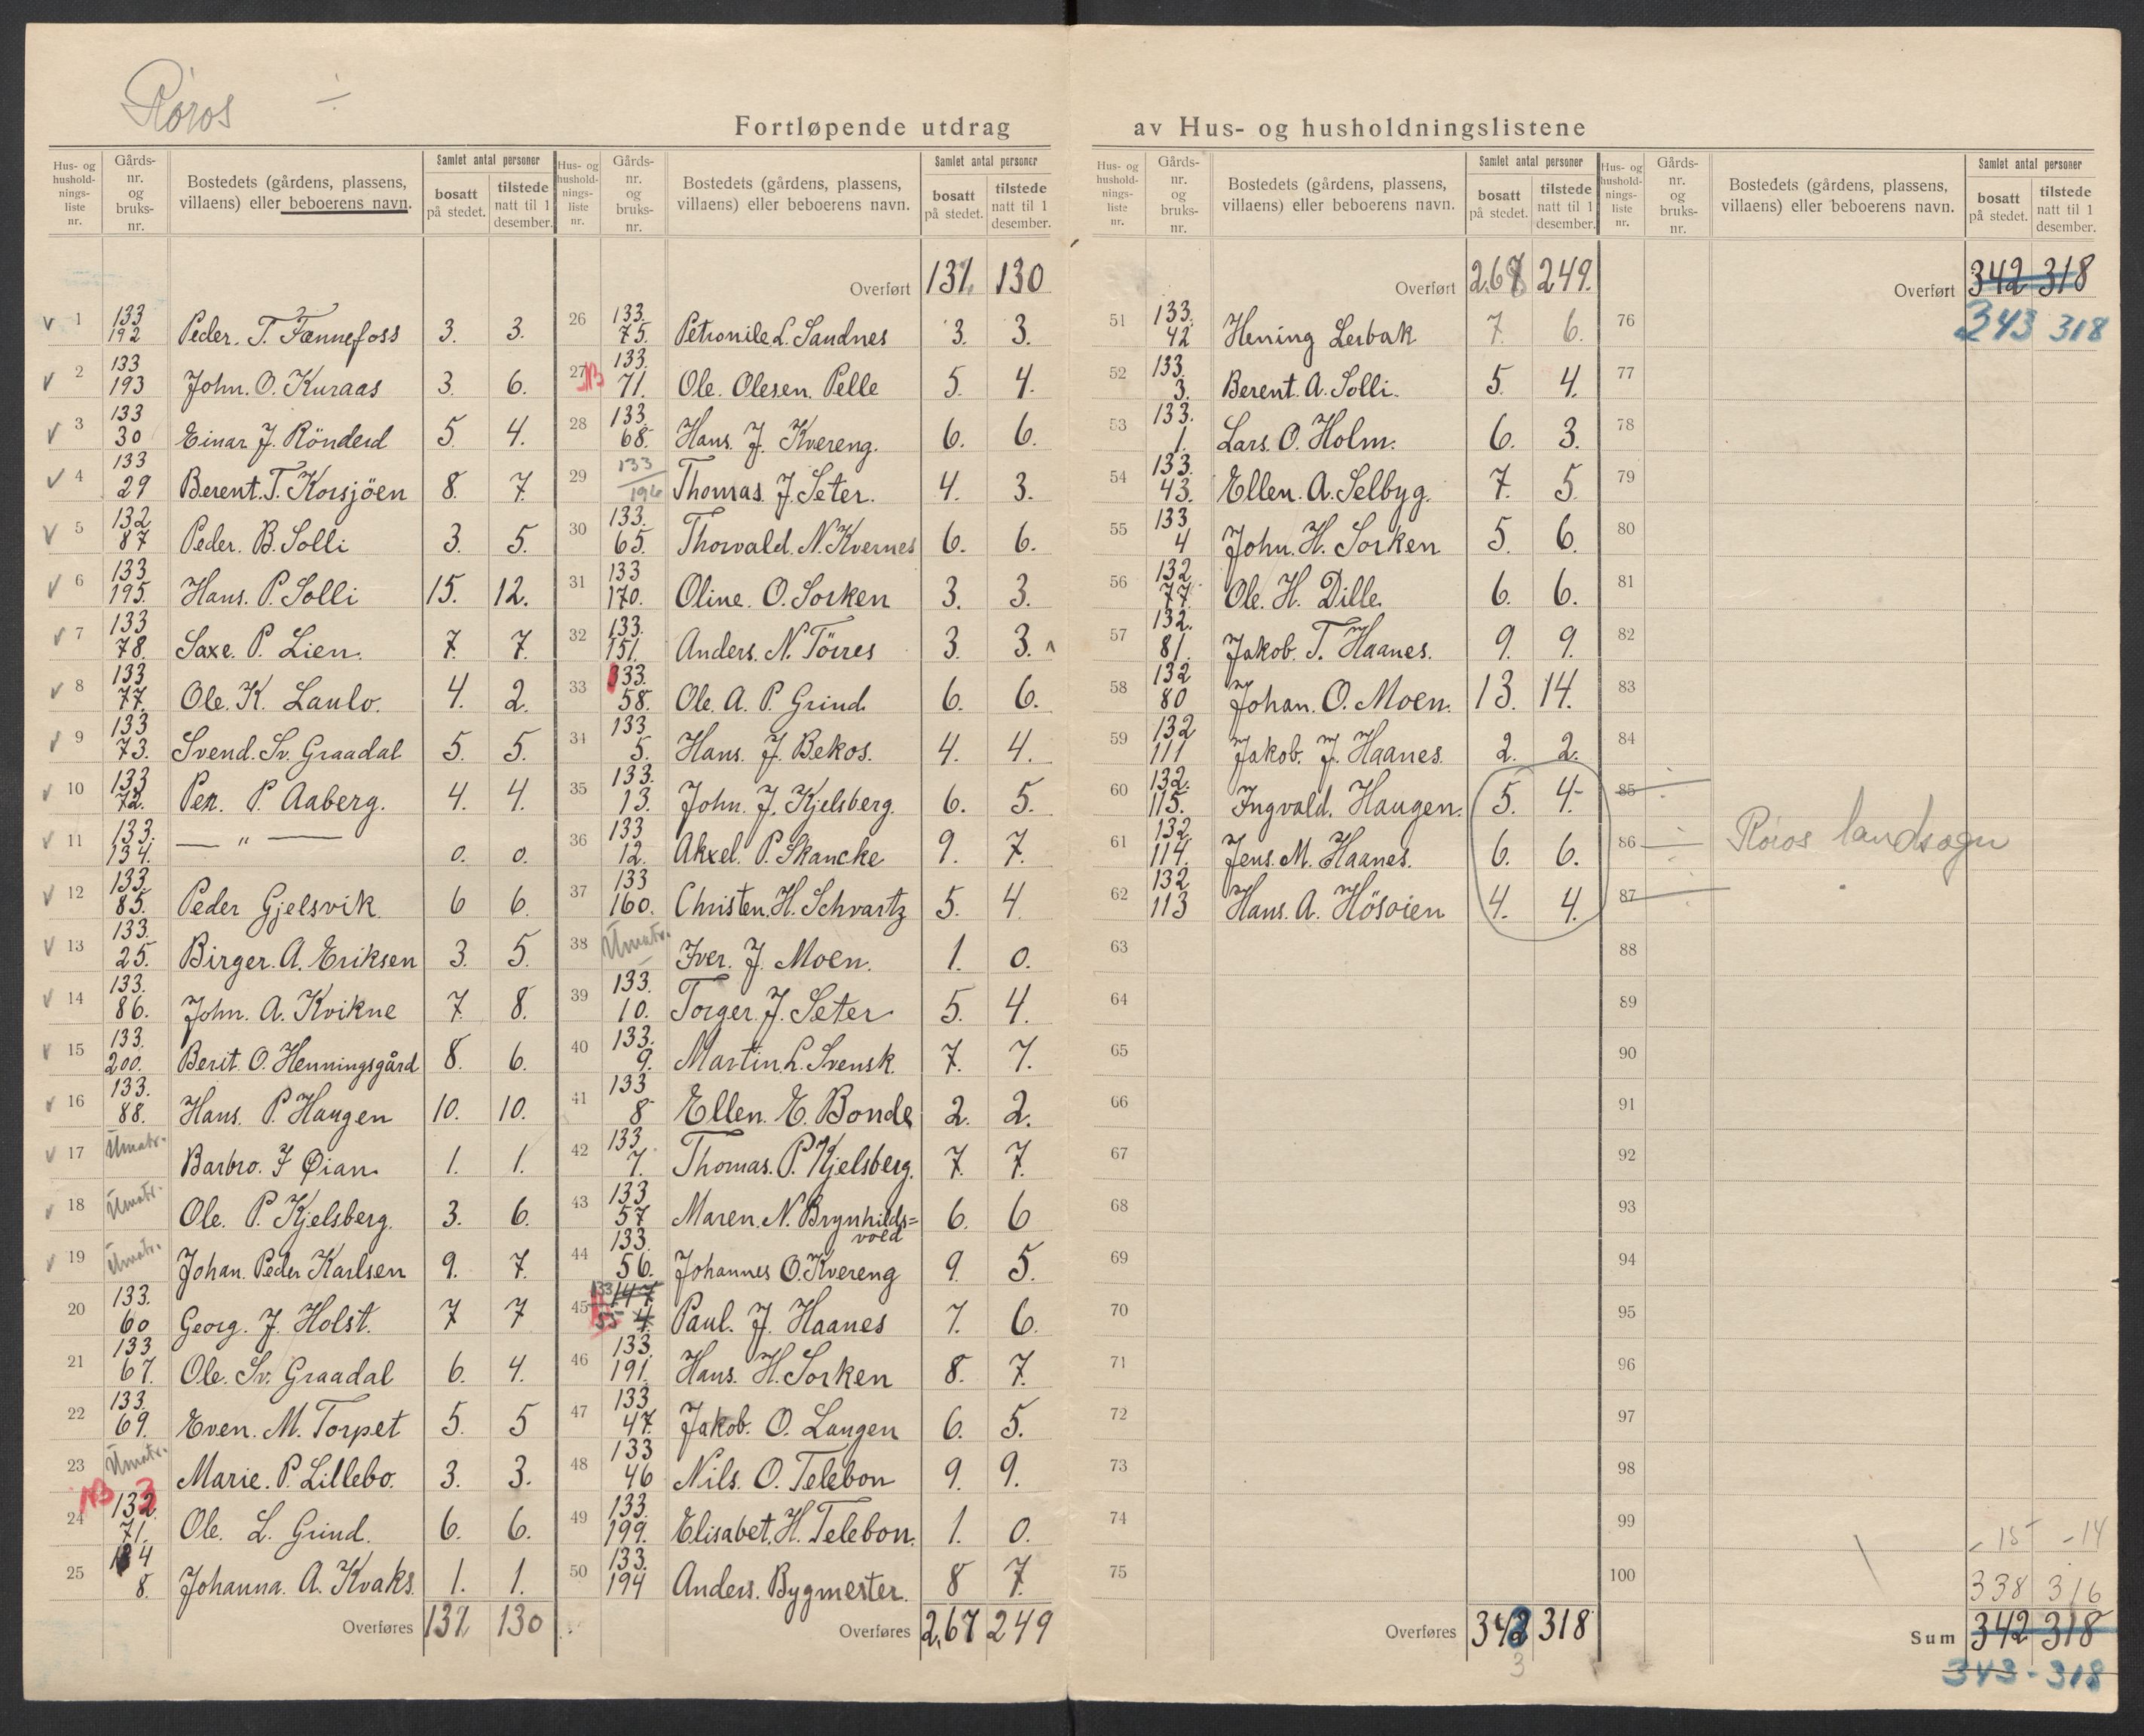 Røros ÷
Fortløpende utdrag av Hus- og husholdningslistene
Hus- og hushold-nings-liste nr. | Gårds-nr. og bruks-nr. | Bostedets (gårdens, plassens, villaens) eller beboerens navn. | Samlet antal personer | bosatt på stedet. | tilstede natt til 1 desember.
1 133 192 Peder. T. Fænnefoss 3. 3.
2 133 193 John. O. Kuraas 3. 6.
3 133 30 Einar J. Rönderd 5. 4.
4 133 29 Berent. T. Korsjöen 8. 7.
5 132 87 Peder. B. Solli 3. 5.
6 133 195. Hans. P. Solli 15. 12.
7 133 78. Saxe. P. Lien. 7. 7.
8 133 77. Ole. K. Laulo. 4. 2.
9 133 73. Svend. Sv. Graadal 5. 5.
10 133 72. Per. P. Aaberg. 4. 4.
11 133. 134. — " — 0. 0.
12 133. 85. Peder Gjelsvik. 6 6.
13 133. 25. Birger. A. Eriksen 3. 5.
14 133. 86. John. A. Kvikne 7. 8.
15 133. 200. Berit. O. Henningsgård 8. 6.
16 133. 88. Hans. P. Haugen 10. 10.
17 Umatr. Barbro. J Øian. 1. 1.
18 Umatr. Ole. P. Kjelsberg. 3. 6.
19 Umatr. Johan. Peder Karlsen 9. 7.
20 133. 60 Georg. J. Holst. 7 7
21 133 67. Ole. Sv. Graadal 6. 4.
22 133. 69. Even. M. Torpet 5. 5
23 Umatr. Marie. P. Lillebo. 3. 3.
NB 3
24 132. 71. Ole. L. Grind. 6. 6.
25 134 8. Johanna. A. Kvaks. 1. 1.
Overføres 132 130
Hus- og hushold-nings-liste nr. | Gårds-nr. og bruks-nr. | Bostedets (gårdens, plassens, villaens) eller beboerens navn. | Samlet antal personer | bosatt på stedet. | tilstede natt til 1 desember.
Overført 131. 130
26 133. 75. Petronile L. Sandnes 3. 3.
27 NB 133. 71. Ole. Olesen. Pelle 5. 4.
28 133. 68. Hans. J. Kvereng. 6. 6.
29 133 196 Thomas. J. Seter. 4. 3.
30 133. 65. Thorvald. N. Kvernes 6. 6.
31 133 170. Oline. O. Sorken 3. 3.
32 133. 151. Anders. N. Törres 3. 3.
33 133. 58. Ole. A. P. Grind. 6. 6.
34 133 5. Hans. J. Bekos. 4. 4.
35 133. 13. John. J. Kjelsberg. 6. 5.
36 133 12. Akxel. P. Skancke 9. 7.
37 133 160. Christen. H. Schvartz 5. 4.
38 Umatr. Iver. J. Moen. 1. 0.
39 133. 10. Torger. J. Seter 5. 4.
40 133. 9. Martin. L. Svensk. 7. 7.
41 133 8 Ellen. E. Bonde 2. 2.
42 133 7. Thomas. P. Kjelsberg. 7. 7.
43 133 57 Maren. N. Brynhilds=vold 6. 6
44 133. 56. Johannes O. Kvereng 9. 5.
45 133 55 147 4. Paul. J. Haanes 7. 6.
46 133. 191. Hans. H. Sorken 8. 7.
47 133 47. Jakob. O. Langen 6. 5.
48 133 46 Nils. O. Telebon 9. 9.
49 133. 199. Elisabet. H. Telebon. 1. 0.
50 133. 194 Anders. Bygmester. 8 7.
Overføres 267 249
Hus- og hushold-nings-liste nr. | Gårds-nr. og bruks-nr. | Bostedets (gårdens, plassens, villaens) eller beboerens navn. | Samlet antal personer | bosatt på stedet. | tilstede natt til 1 desember.
Overført 268 249.
51 133. 42 Hening Lerbak 7. 6.
52 133. 3. Berent. A. Solli. 5. 4.
53 133. 1. Lars. O. Holm. 6. 3.
54 133. 43. Ellen. A. Selbyg. 7. 5.
55 133 4 John. H. Sorken 5. 6.
56 132 77. Ole. H. Dille. 6. 6.
57 132. 81. Jakob. T. Haanes. 9. 9.
58 132 80 Johan. O. Moen. 13. 14.
59 132 111 Jakob. J. Haanes. 2. 2.
60 132. 115. Ingvald. Haugen. 5. 4.
61 132. 114. Jens. M. Haanes. 6. 6.
62 132 113 Hans. A. Hösöien 4. 4.
63
64
65
66
67
68
69
70
71
72
73
74
75
Overføres 342 318
3
Hus- og hushold-nings-liste nr. | Gårds-nr. og bruks-nr. | Bostedets (gårdens, plassens, villaens) eller beboerens navn. | Samlet antal personer | bosatt på stedet. | tilstede natt til 1 desember.
Overført 342 318
76 343 318
77
78
79
80
81
82
83
84
85 ÷
86 ÷ Røros landsogn
87 ÷
88
89
90
91
92
93
94
95
96
97
98
99 - 15 - 14
100 338 316
Sum 342 318
343 - 318